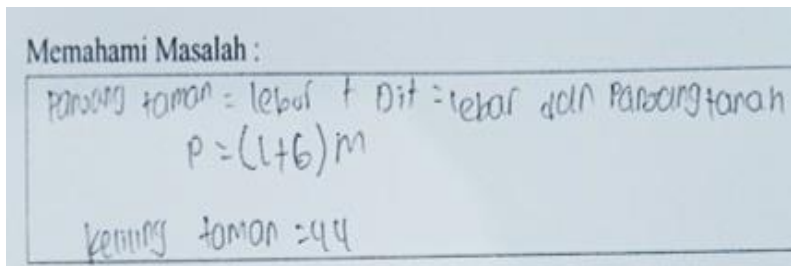 Memahami Masalah :
Panjang taman = lebar + Dit = lebar dan Panjang tanah
P = (l+6) m
keliling taman = 44